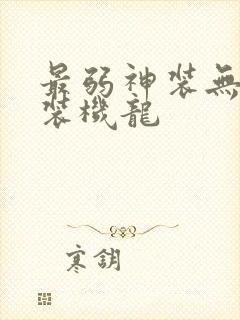 最弱神装無
装機龍
寒鈅